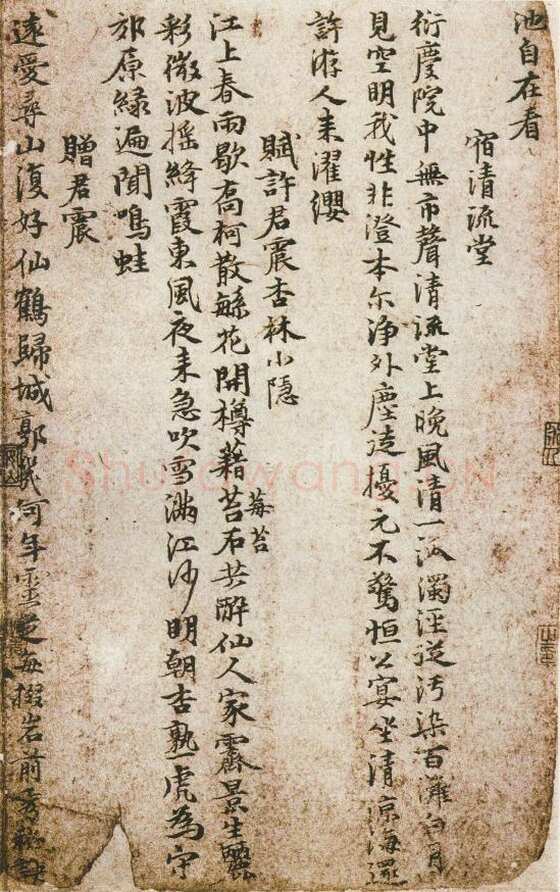 池自在看
宿清流堂
衍慶院中無市聲清流堂上晚風清一泓濁涇從汚染百灘白月
見空明我性非澄本尔淨外塵從擾元不驚恒公宴坐清涼海還
許游人来濯纓
賦許君震杏林小隱
江上春雨歇喬柯散繇花開樽藉苔石共醉仙人家霽景生
莓苔
彩微波揺絳霞東風夜来急吹雪滿江沙明朝杏熟虎為守
郊原緑遍聞鳴蛙
贈君震
遠愛尋山復好仙鶴歸城郭幾何年靈芝每掇岩前秀秘訣
Shufawang.CN